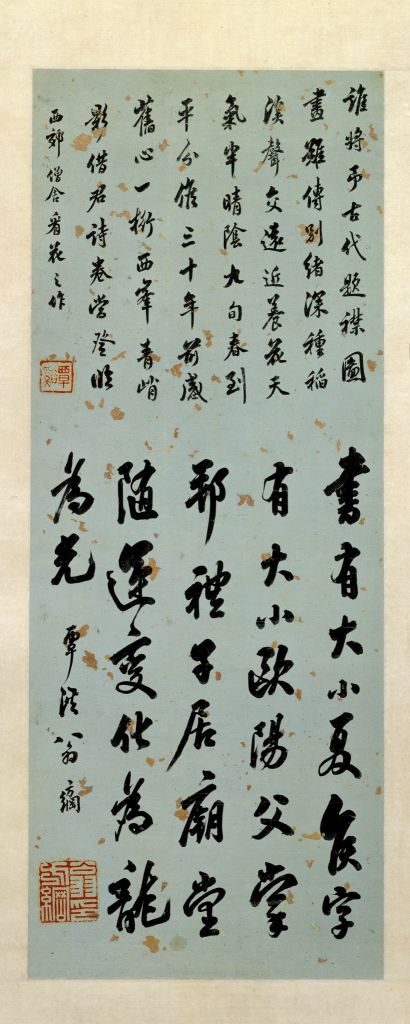 誰將予古代題襟圖
畫雖傳別緒深種稻
溪聲交遠近養花天
氣半晴陰九旬春到
平分候三十年前感
舊心一桁西峯青峭
影借君詩卷當登臨
西郊僧舍看花之作
書有大小夏侯字
有大小歐陽父掌
邦禮子居廟堂
隨運變化為龍
為光
覃溪翁方綱
翁方綱印